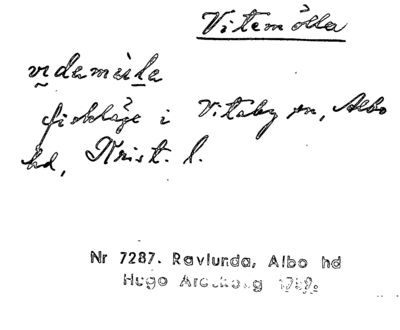 Vitemölla
vidamöla
fiskläge i Vitaby sn, Albo
hd, Krist. l.
Nr 7287. Ravlunda, Albo hd
Hugo Areskoug